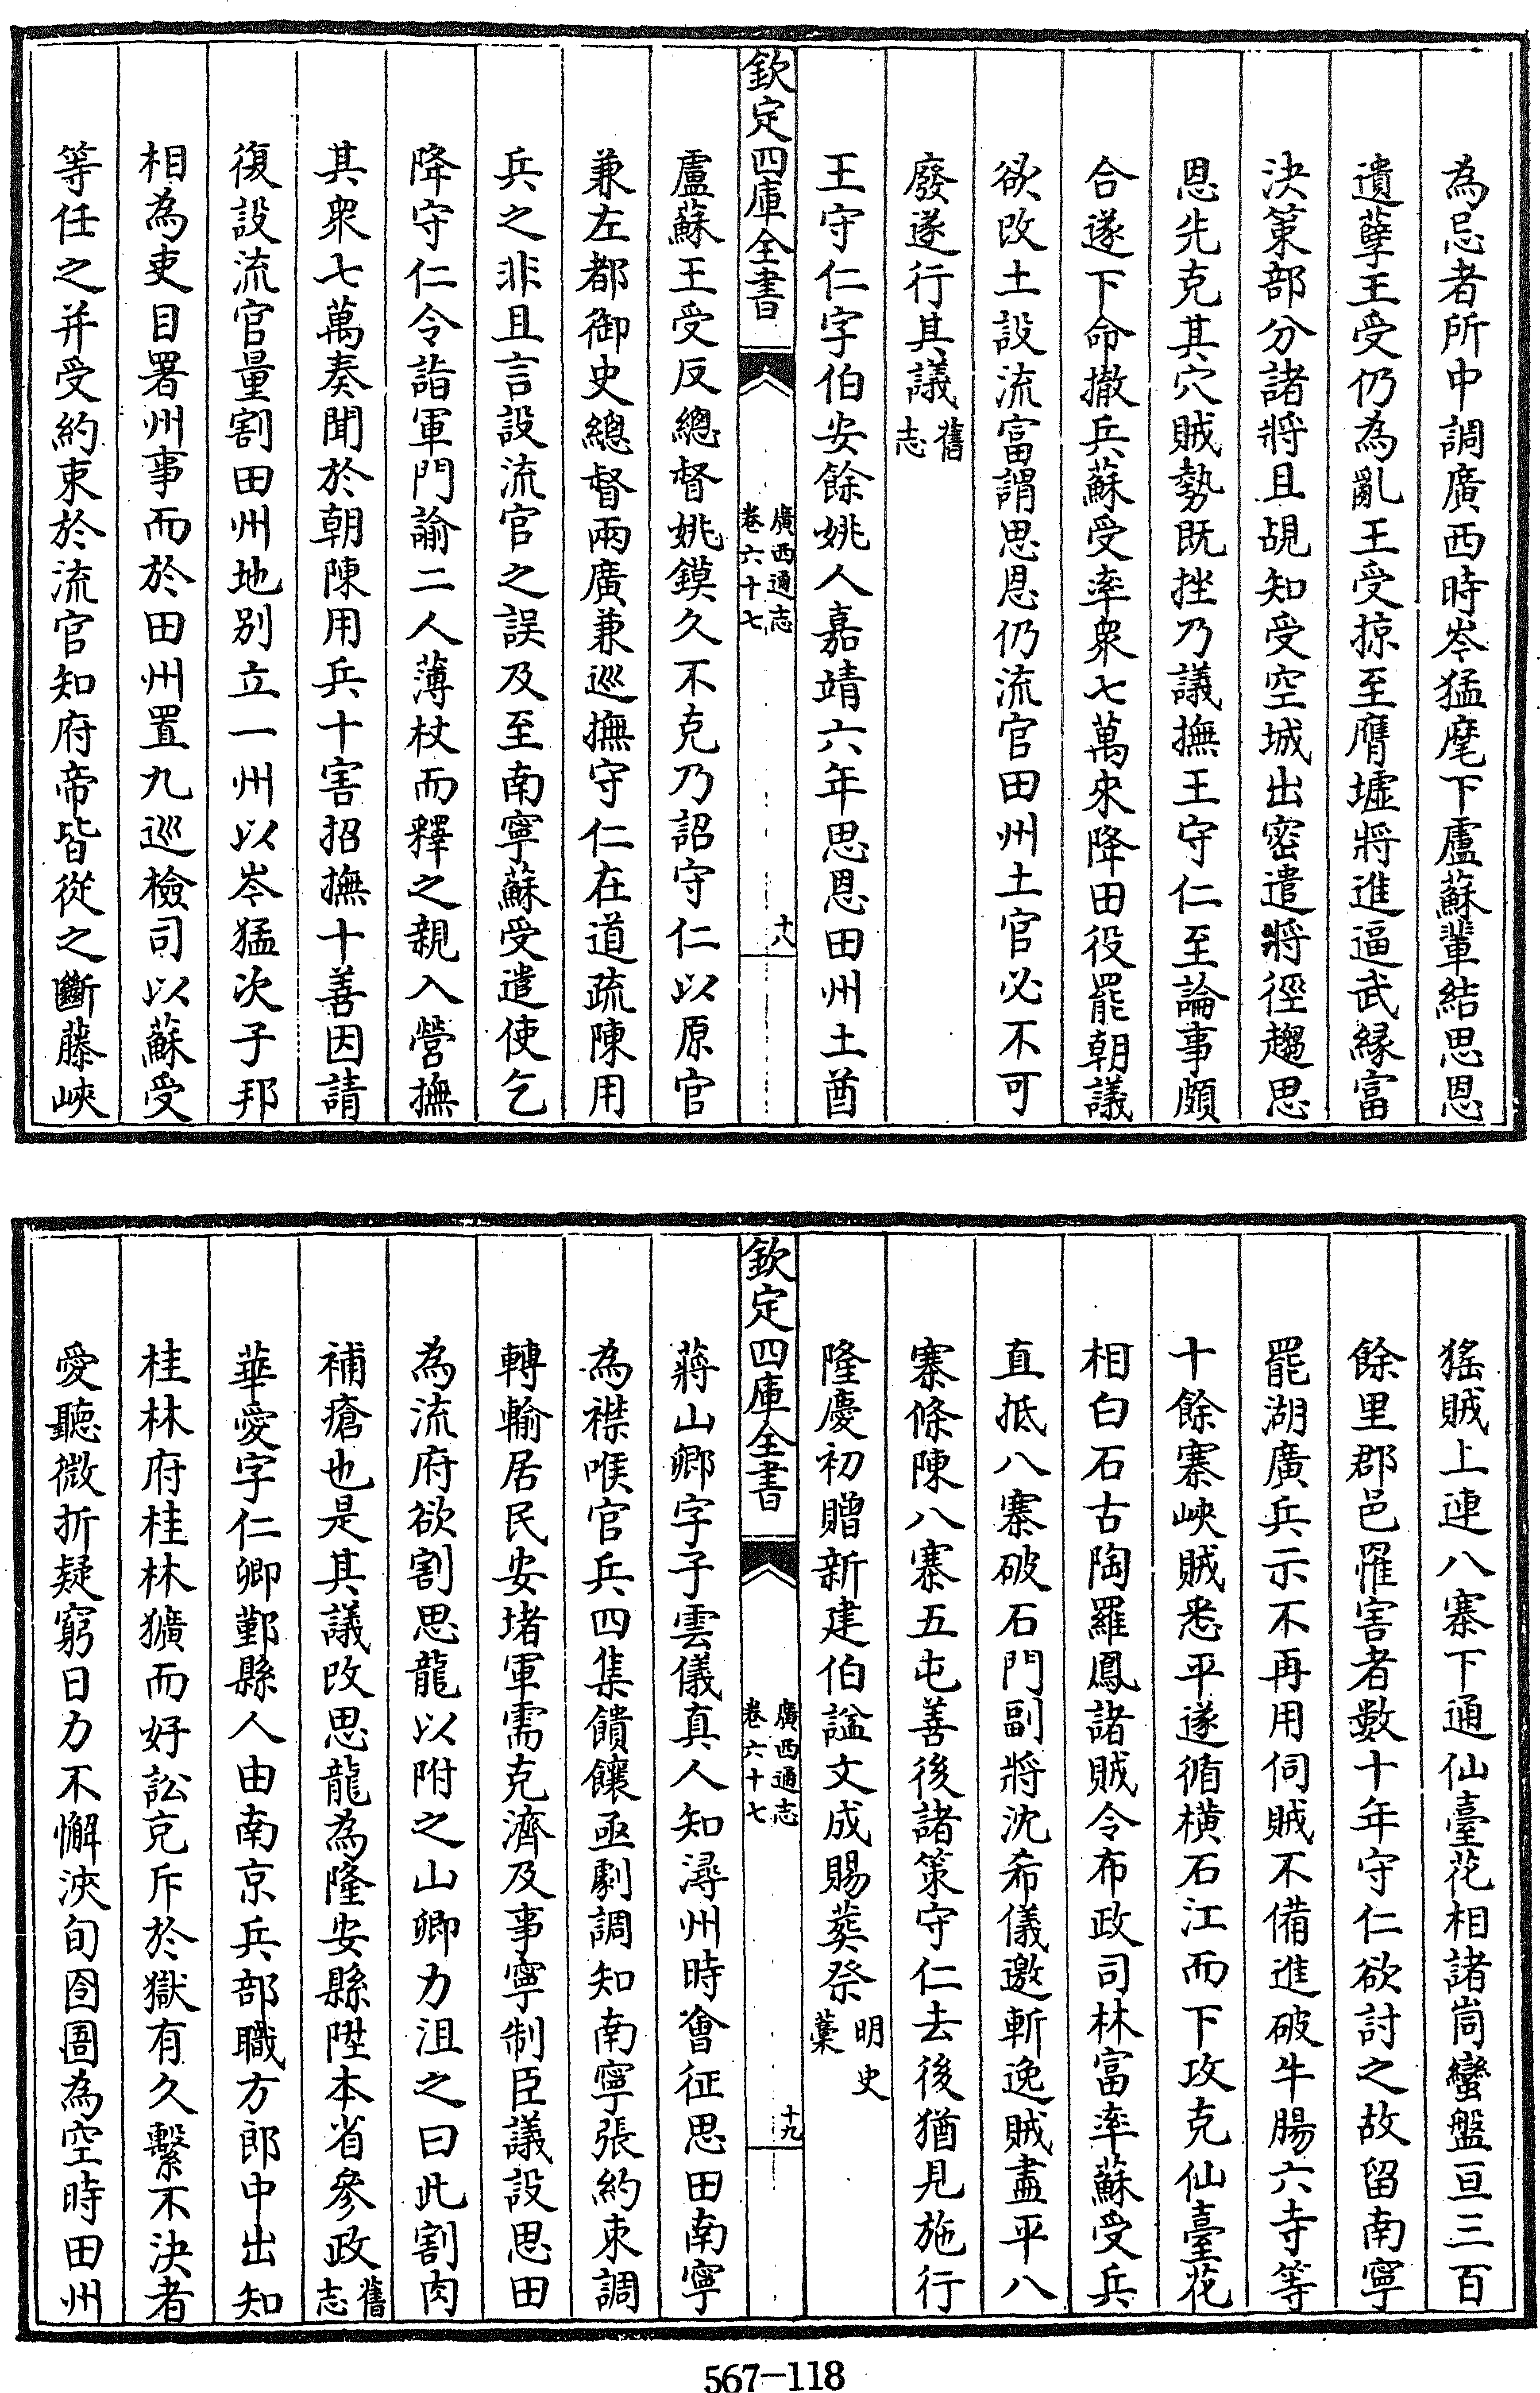 為忌者所中調廣西時岑猛麾下盧蘇輩結思恩
遺孽王受仍為亂王受掠至膺墟將進逼武緣富
決策部分諸將且覘知受空城出密遣將徑趨思
恩先克其穴賊勢既挫乃議撫王守仁至論事頗
合遂下命撤兵蘇受率衆七萬來降田役罷朝議
欲改土設流富謂思恩仍流官田州土官必不可
廢遂行其議舊志
王守仁字伯安餘姚人嘉靖六年思恩田州土酋
欽定四庫全書
廣西通志
卷六十七
十八
盧蘇王受反總督姚鏌久不克乃詔守仁以原官
兼左都御史總督兩廣兼巡撫守仁在道疏陳用
兵之非且言設流官之誤及至南寧蘇受遣使乞
降守仁令詣軍門諭二人薄杖而釋之親入營撫
其衆七萬奏聞於朝陳用兵十害招撫十善因請
復設流官量割田州地别立一州以岑猛次子邦
相為吏目署州事而於田州置九巡檢司以蘇受
等任之并受約束於流官知府帝皆從之斷藤峽
猺賊上連八寨下通仙臺花相諸峝蠻盤亘三百
餘里郡邑罹害者數十年守仁欲討之故留南寧
罷湖廣兵示不再用伺賊不備進破牛腸六寺等
十餘寨峽賊悉平遂循橫石江而下攻克仙臺花
相白石古陶羅鳳諸賊令布政司林富率蘇受兵
直抵八寨破石門副將沈希儀邀斬逸賊盡平八
寨條陳八寨五屯善後諸策守仁去後猶見施行
隆慶初贈新建伯諡文成賜葬祭明史藁
欽定四庫全書
廣西通志
卷六十七
十九
蔣山卿字子雲儀真人知潯州時會征思田南寧
為襟喉官兵四集饋饟亟劇調知南寧張約束調
轉輸居民安堵軍需克濟及事寧制臣議設思田
為流府欲割思龍以附之山卿力沮之曰此割肉
補瘡也是其議改思龍為隆安縣陞本省參政舊志
華愛字仁卿鄞縣人由南京兵部職方郎中出知
桂林府桂林獷而好訟克斥於獄有久繫不決者
愛聽微折疑窮日力不懈浹旬囹圄為空時田州
567-118